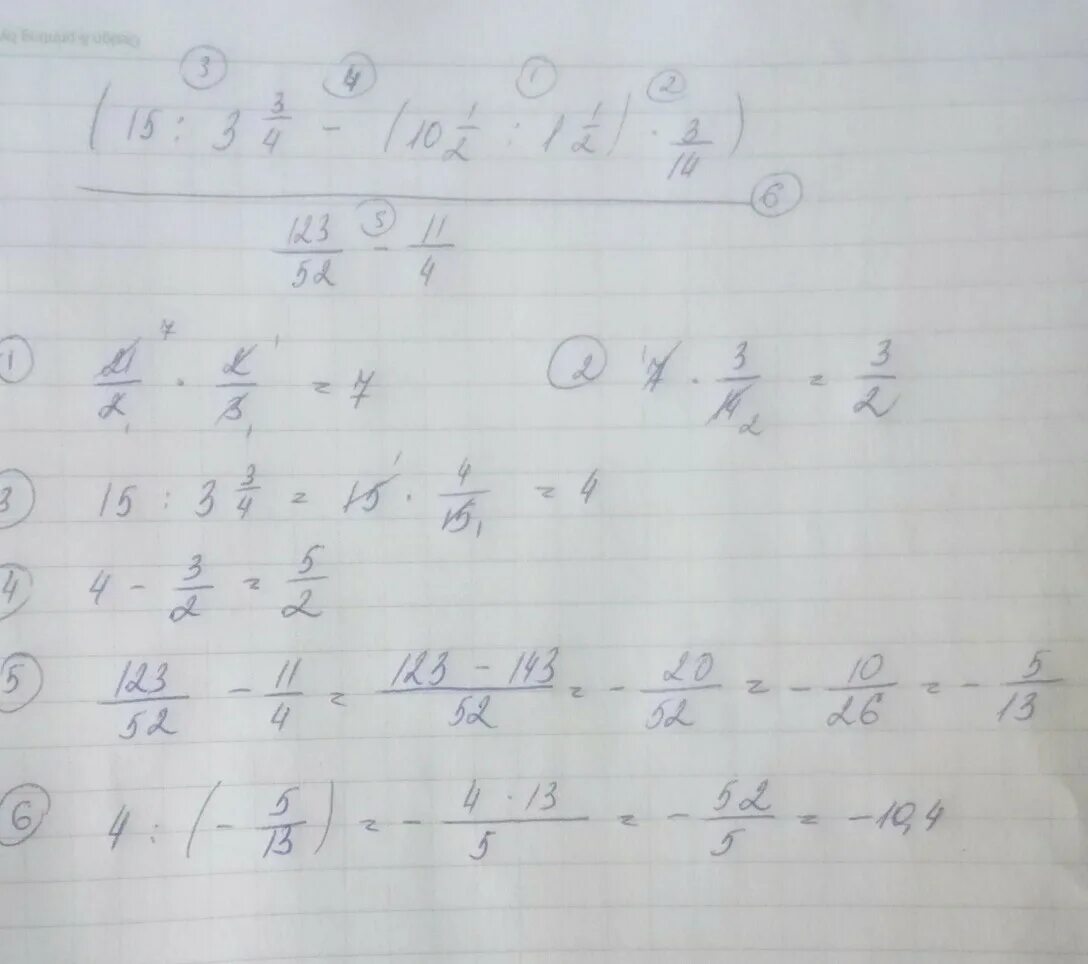 ③ ④ ① ②
(15 : 3 3/4 - (10 1/2 : 1 1/2) · 3/14)
⑥
123/52 - 11/4
⑤
① 21/2 · 2/3 = 7
7 1 1 1
② 7 · 3/14 = 3/2
1 2
③ 15 : 3 3/4 = 15 · 4/15 = 4
1 1
④ 4 - 3/2 = 5/2
⑤ 123/52 - 11/4 = (123 - 143)/52 = - 20/52 = - 10/26 = - 5/13
⑥ 4 : (- 5/13) = - (4 · 13)/5 = - 52/5 = -10,4